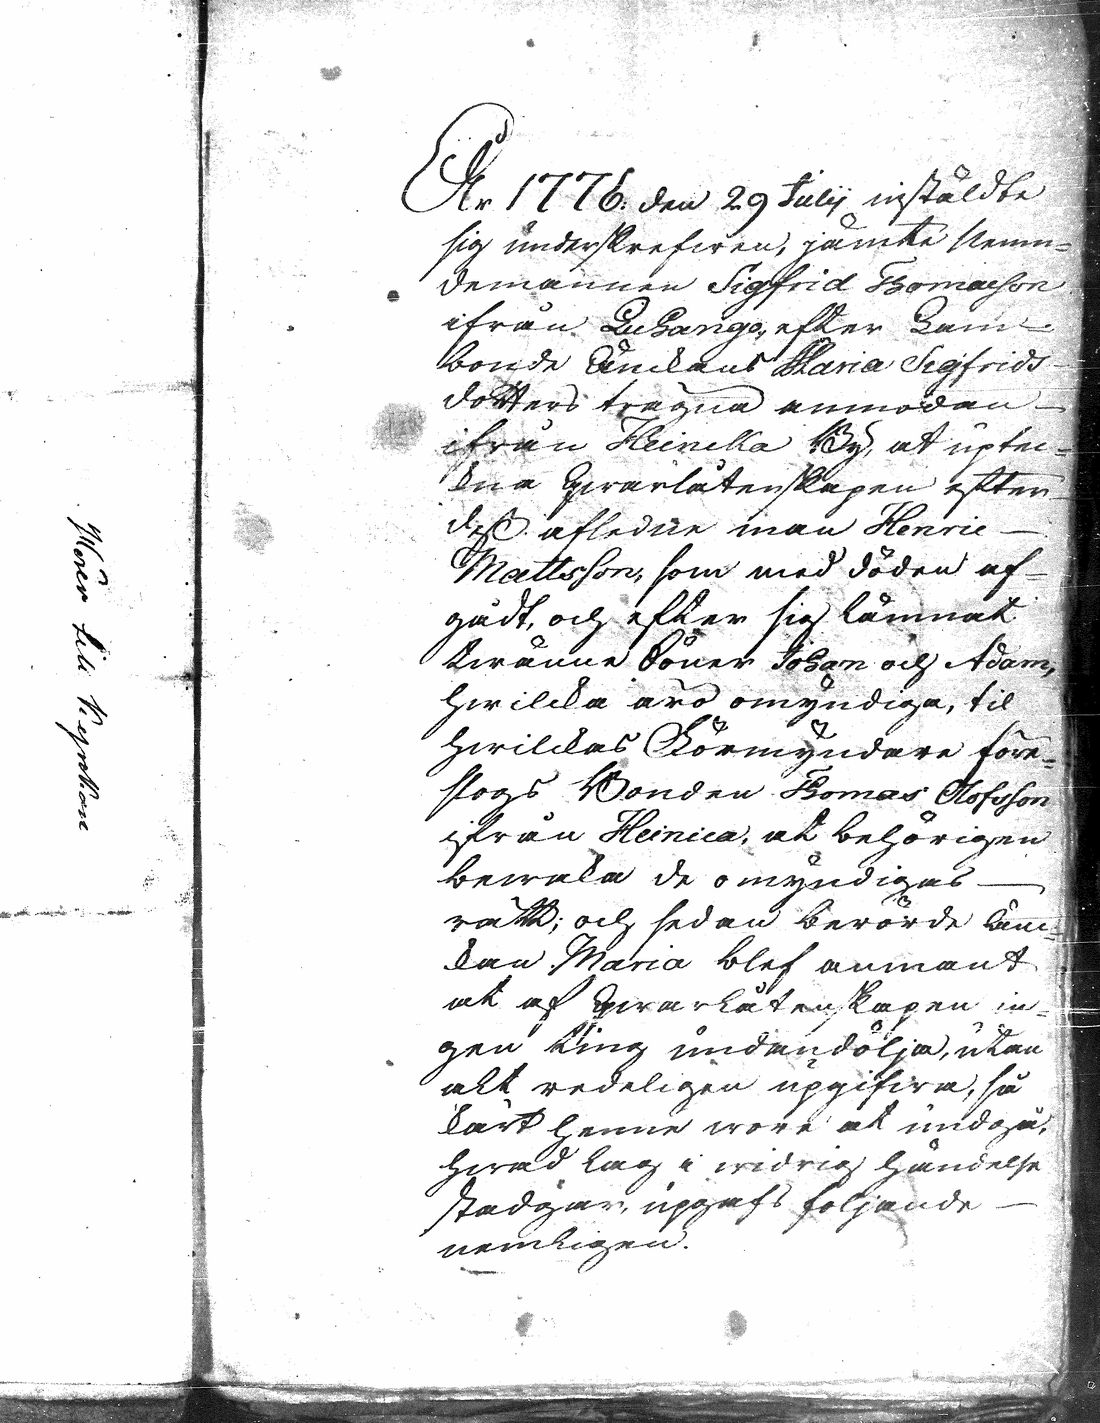 År 1776. den 29 Julij instäldte
sig underskrefwen, jämte Nemn-
demannen Sigfrid Thomasson
ifrån Luhango, efter Lam-
bonde Änckans Maria Sigfrids-
dotters trägna anmodan
ifrån Heincka By, at uptec-
kna qwarlåtenskapen efter
dess afledne man Henric
Mattsson, som med döden af-
gådt, och efter sig lämnat
twänne Söner Johan och Adam,
hwilcka äro omyndiga, til
hwilckas Förmyndare före-
slogs Bonden Thomas Olofsson
ifrån Heinica, at behörigen
bewaka de omyndigas
rätt; och sedan berörde Änc-
kan Maria blef anmant
at af qwarlåtenskapen in-
gen ting undandölja, utan
alt redeligen upgifwa, så
kärt henne wore at undgå,
hwad Lag i widrig händelse
stadgar, upgafs följande
nemligen.
Hörer till